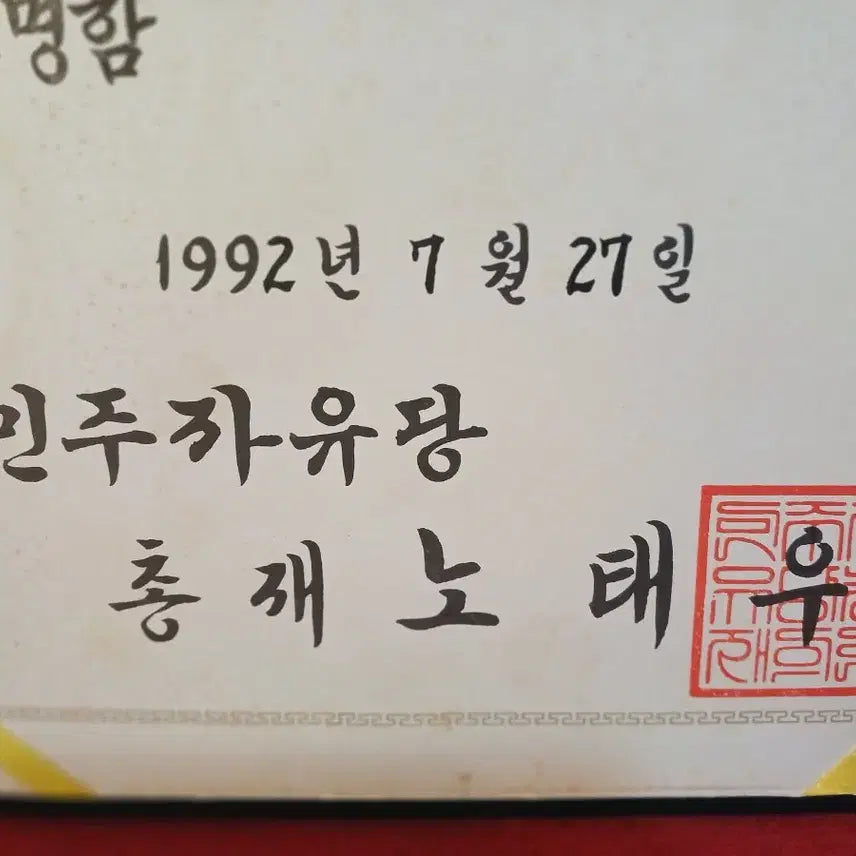 명함
1992년 7월 27일
민주자유당
총재 노태우